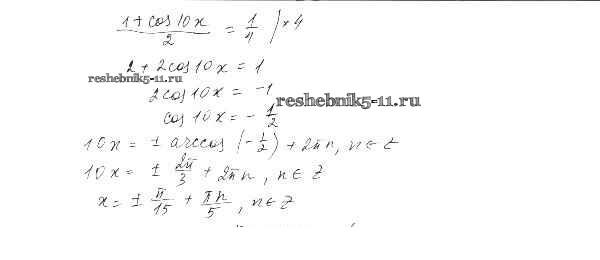 (1 + cos10x)/2 = 1/4 | × 4
2 + 2cos10x = 1
reshebnik5-11.ru
2cos10x = -1
reshebnik5-11.ru
cos10x = - 1/2
10x = ± arccos(-1/2) + 2πn, n ∈ Z
10x = ± 2π/3 + 2πn, n ∈ Z
x = ± π/15 + πn/5, n ∈ Z